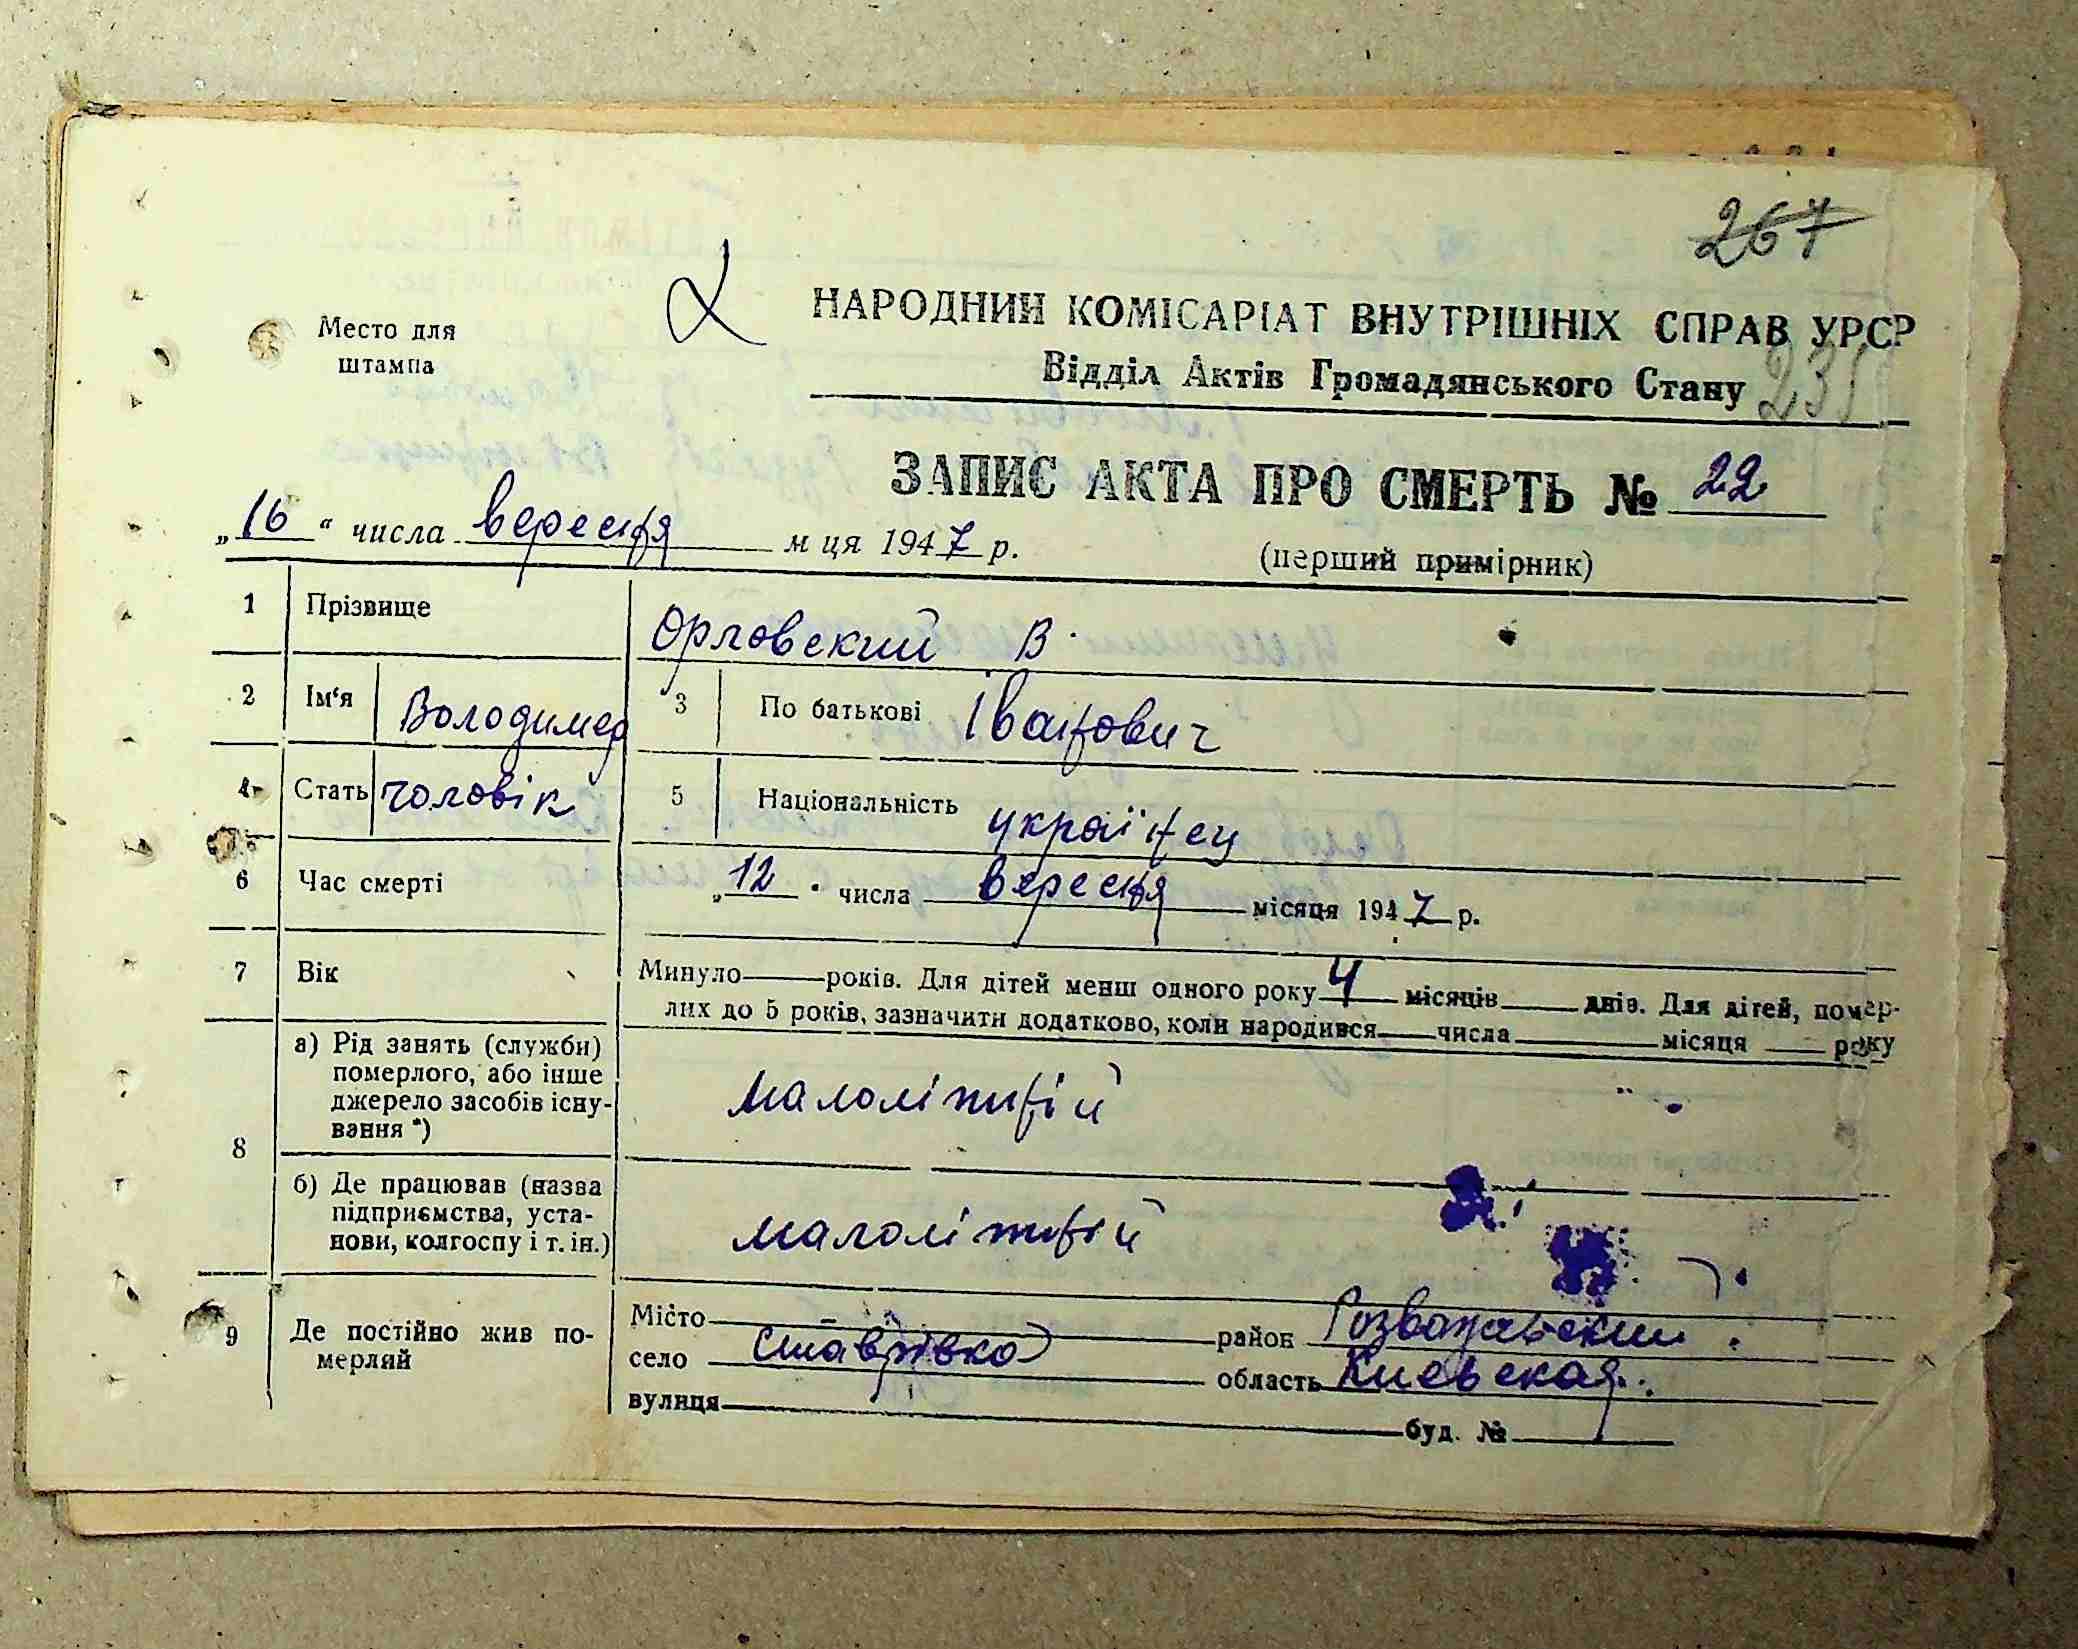 267
Место для
штампа
НАРОДНИЙ КОМІСАРІАТ ВНУТРІШНІХ СПРАВ УРСР
Відділ Актів Громадянського Стану 235
ЗАПИС АКТА ПРО СМЕРТЬ № 22
„16“ числа вересня м ця 1947 р.
(перший примірник)
1 Прізвище Орловский В.
2 Ім'я Володимер 3 По батькові Іванович
4 Стать чоловік 5 Національність українец
6 Час смерті „12" числа вересня місяця 1947 р.
7 Вік Минуло — років. Для дітей менш одного року 4 місяців — днів. Для дітей, помер-
лих до 5 років, зазначити додатково, коли народився — числа — місяця — року
8 а) Рід занять (служби)
померлого, або інше
джерело засобів існу-
вання *) малолітній
б) Де працював (назва
підприємства, уста-
нови, колгоспу і т. ін.) малолітній
9 Де постійно жив по-
мерлий
Місто — район Розважевский
село Ставрівка область Киевская
вулиця буд. №